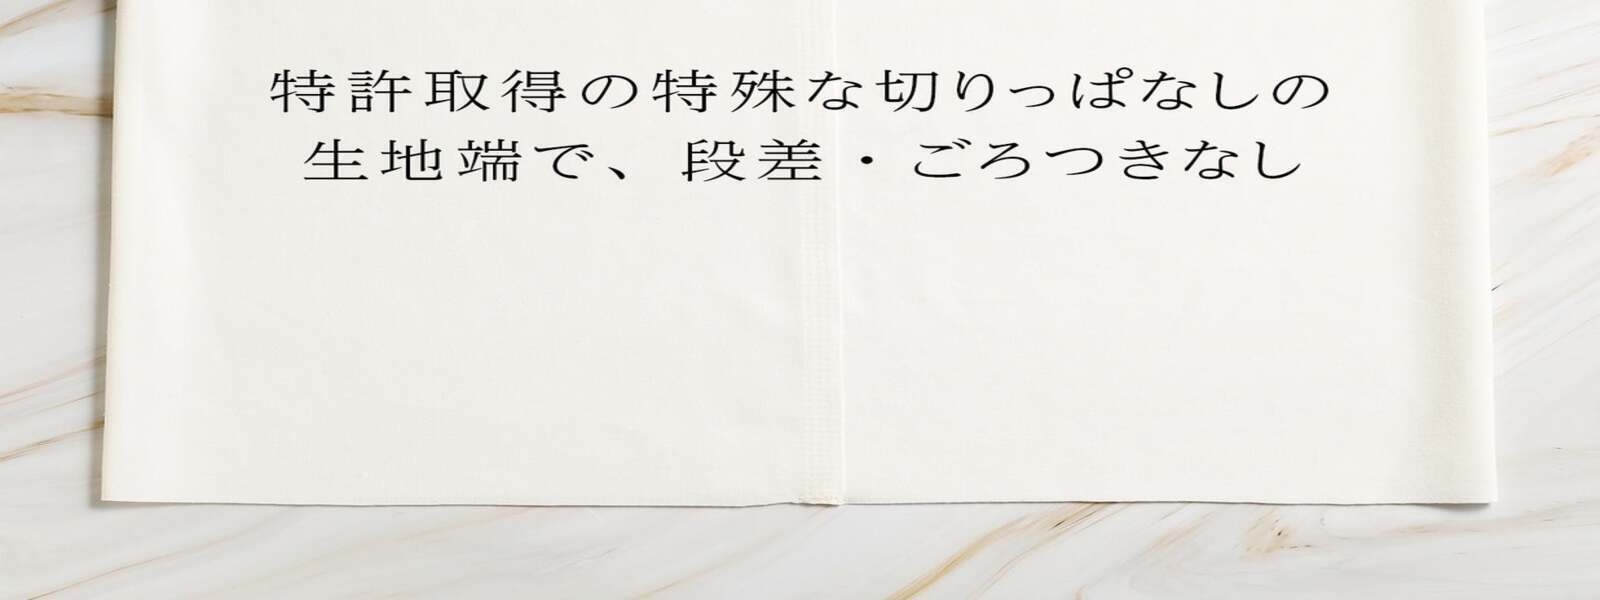 特許取得の特殊な切りっぱなしの
生地端で、段差・ごろつきなし